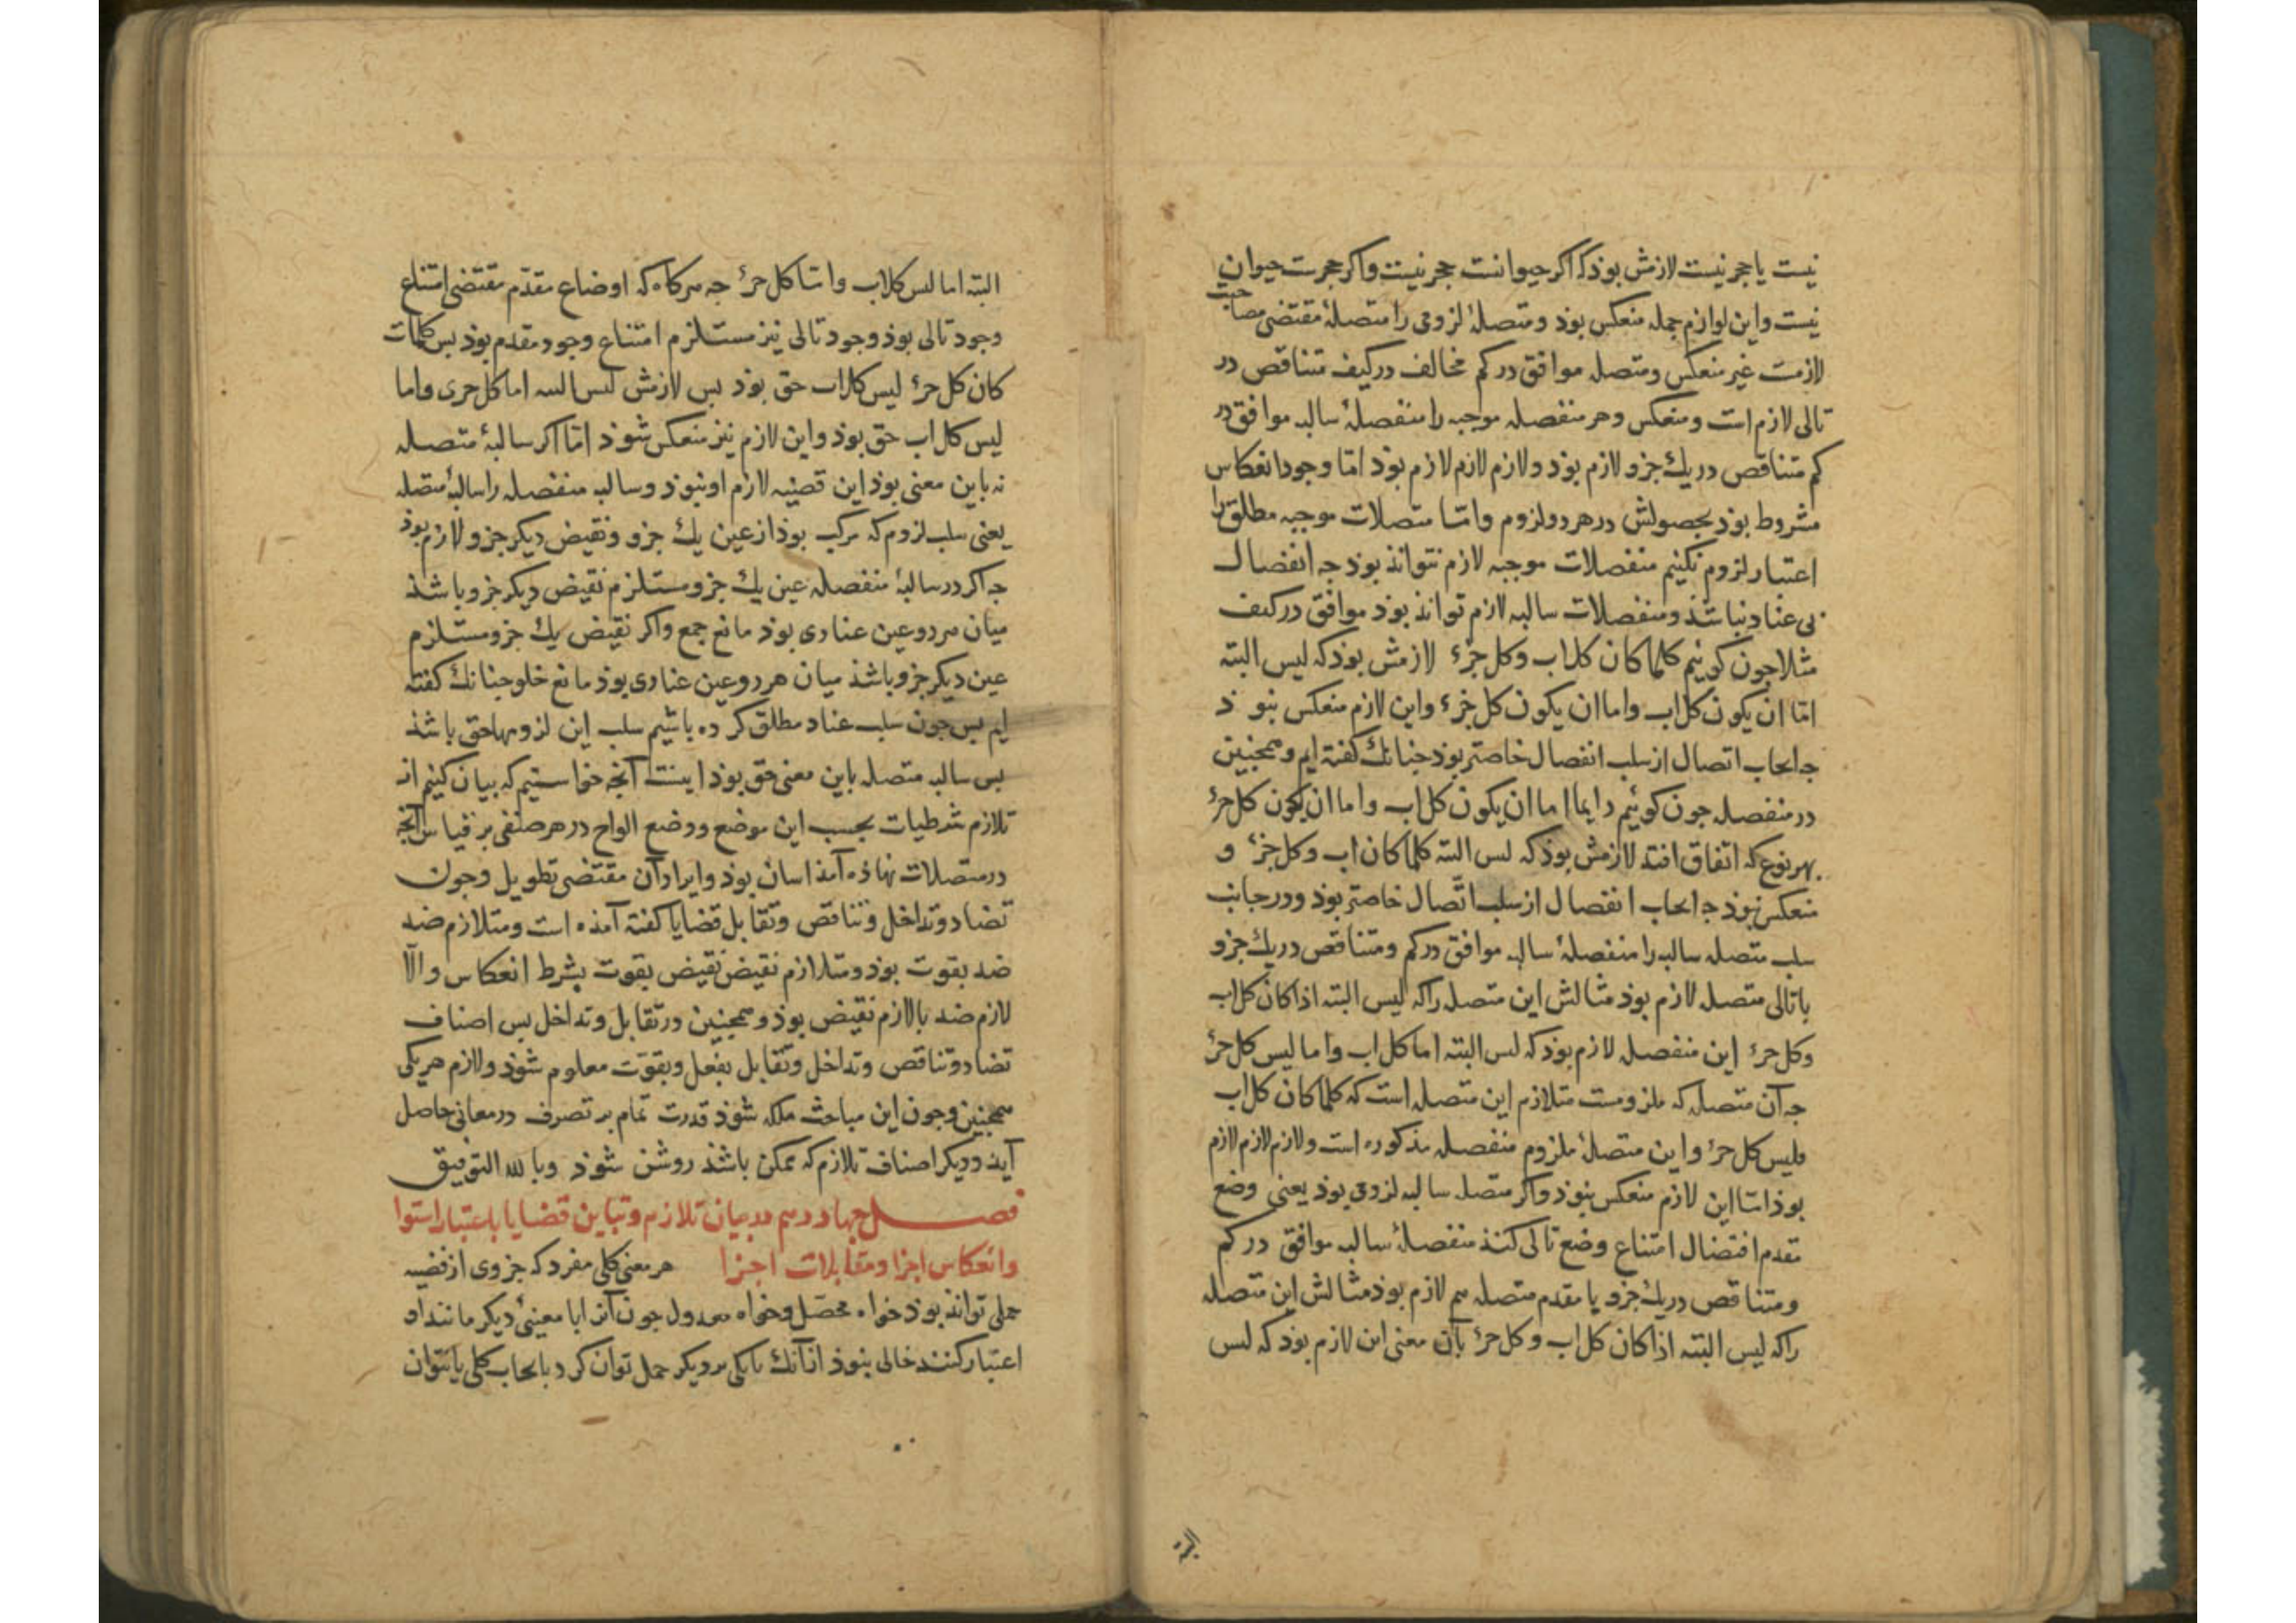 نیست یا حجر نیست لازمش بوذ که اکر حیوانست حجر نیست واکر حجرست حیوان
نیست واین لوازم جمله منعکس بوذ ومتصلهٔ لزومی را متصلهٔ مقتضی مصاحبت
لازمست غیر منعکس ومتصله موافق در کم مخالف در کیف متناقض در
تالی لازم است ومنعکس وهر منفصله موجبه را منفصلهٔ سالبه موافق در
کم متناقض در یك جزو لازم بوذ ولازم لازم لازم بوذ امّا وجود انعکاس
مشروط بوذ بحصولش در هر دو لزوم وامّا متصلات موجبه مطلق را
اعتبار لزوم نکنیم منفصلات موجبه لازم نتواند بوذ جه انفصال
بی عناد نباشذ ومنفصلات سالبه لازم تواند بوذ موافق در کیف
مثلا جون کوئیم کلما کان کل اب وکل جزء لازمش بوذ که لیس البته
امّا ان یکون کل اب واما ان یکون کل جزء واین لازم منعکس نبوذ
جه ایجاب اتصال از سلب انفصال خاصتر بوذ جنانك کفته ایم وهمجنین
در منفصله جون کوئیم دایما اما ان یکون کل اب واما ان یکون کل جزء
بهر نوع که اتفاق افتد لازمش بوذ که لیس البته کلما کان اب وکل جزء و
منعکس نبوذ جه ایجاب انفصال از سلب اتّصال خاصتر بوذ ودر جانب
سلب متصله سالبه را منفصلهٔ سالبه موافق در کم ومتناقض در یك جزو
با تالی متصله لازم بوذ مثالش این متصله را که لیس البته اذا کان کل اب
وکل جزء این منفصله لازم بوذ که لیس البته اما کل اب واما لیس کل جزء
جه آن متصله که ملزومست متلازم این متصله است که کلما کان کل اب
فلیس کل جزء واین متصلهٔ ملزوم منفصله مذکوره است ولازم لازم لازم
بوذ امّا این لازم منعکس نبوذ واکر متصله سالبه لزومی بوذ یعنی وضع
مقدم اقتضال امتناع وضع تالی کند منفصلهٔ سالبه موافق در کم
ومتناقض در یك جزو یا مقدم متصله هم لازم بوذ مثالش این متصله
را که لیس البته اذا کان کل اب وکل جزء بآن معنی این لازم بوذ که لیس
البته
البته اما لیس کل اب وامّا کل جزء جه هرکاه که اوضاع مقدّم مقتضی امتناع
وجود تالی بوذ وجود تالی نیز مستلزم امتناع وجود مقدم بوذ بس کلمات
کان کل جزء لیس کل اب حق بوذ بس لازمش لیس البته اما کل جزء واما
لیس کل اب حق بوذ واین لازم نیز منعکس شوذ امّا اکر سالبهٔ متصله
نه باین معنی بوذ این قضیه لازم او نبوذ وسالبه منفصله را سالبهٔ متصله
یعنی سلب لزوم که مرکب بوذ از عین یك جزو ونقیض دیکر جزو لازم بوذ
جه اکر در سالبهٔ منفصله عین یك جزو مستلزم نقیض دیکر جزو باشذ
میان هر دو عین عنادی بوذ مانع جمع واکر نقیض یك جزو مستلزم
عین دیکر جزو باشذ میان هر دو عین عنادی بوذ مانع خلو جنانك کفته
ایم بس جون سلب عناد مطلق کرده باشیم سلب این لزومها حق باشذ
بس سالبه متصله باین معنی حق بوذ اینست آنجه خواستیم که بیان کنیم از
تلازم شرطیات بحسب این موضع ووضع الواح در هر صنفی بر قیاس آنجه
در متصلات نهاذه آمذ اسان بوذ وایراد آن مقتضی تطویل وجون
تضاد وتداخل وتناقض وتقابل قضایا کفته آمذه است ومتلازم ضد
ضد بقوت بوذ ومتلازم نقیض نقیض بقوت بشرط انعکاس والّا
لازم ضد یا لازم نقیض بوذ وهمجنین در تقابل وتداخل بس اصناف
تضاد وتناقض وتداخل وتقابل بفعل وبقوّت معلوم شوذ ولازم هر یکی
همجنین وجون این مباحث ملکه شوذ قدرت تمام بر تصرف در معانی حاصل
آید ودیکر اصناف تلازم که ممکن باشذ روشن شوذ وبالله التوفیق
فصل جهاردهم در بیان تلازم وتباین قضایا باعتبار استوا
وانعکاس اجزا ومتقابلات اجزا هر معنی کلی مفرد که جزوی از قضیه
حملی تواند بوذ خواه محصّل وخواه معدول جون آنرا با معنیٔ دیکر مانند او
اعتبار کنند خالی نبوذ از آنك یا یکی بر دیکر حمل توان کرد بایجاب کلی یا نتوان